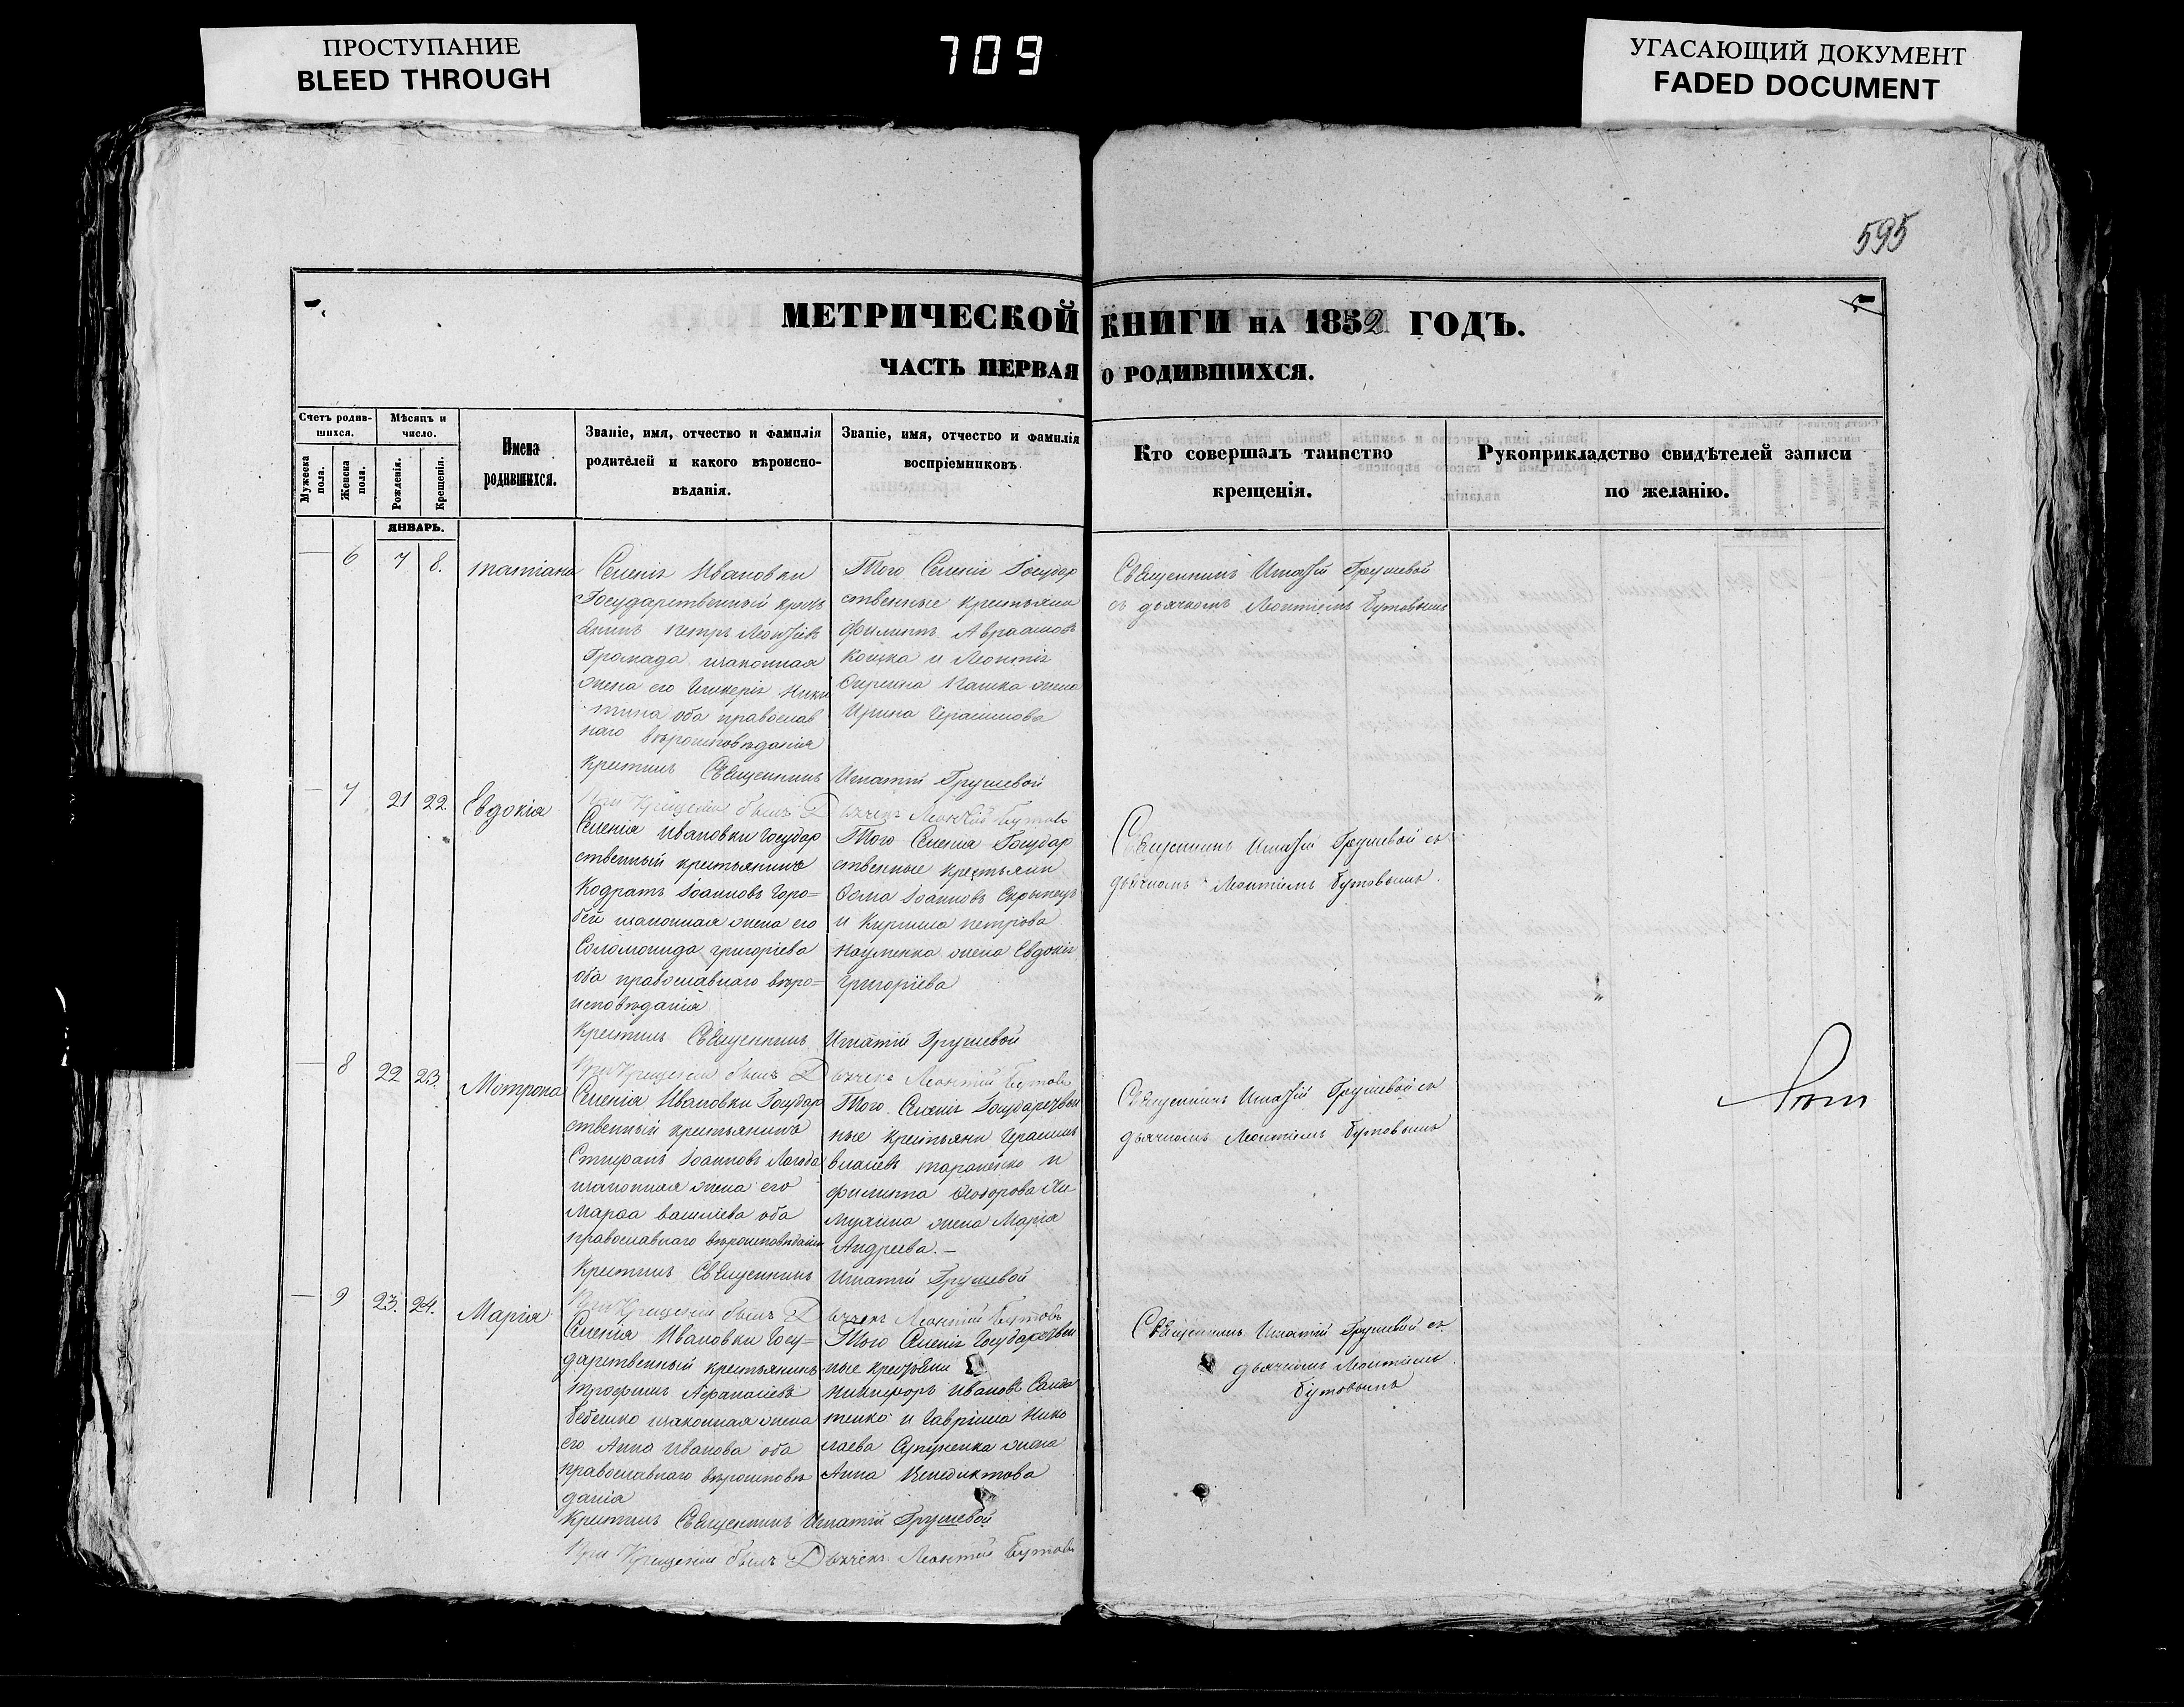 ПРОСТУПАНИЕ
BLEED THROUGH
709
УГАСАЮЩИЙ ДОКУМЕНТ
FADED DOCUMENT
595
МЕТРИЧЕСКОЙ КНИГИ НА 1852 ГОДЪ.
ЧАСТЬ ПЕРВАЯ О РОДИВШИХСЯ.
Счетъ родив-
шихся.
Мужеска
пола.
Женска
пола.
Мѣсяцъ и
число.
Рожденія.
Крещенія.
Имена
родившихся.
Званіе, имя, отчество и фамилія
родителей и какого вѣроиспо-
вѣданія.
Званіе, имя, отчество и фамилія
воспріемниковъ.
Кто совершалъ таинство
крещенія.
Рукоприкладство свидѣтелей записи
по желанію.
ЯНВАРЬ.
6 7 8. татіана
Селенія Ивановки
Государственный крест
янинъ петръ Леонтіевъ
Громада изаконная
жена его Гликерія Ники
тина оба православ
наго вѣроисповѣданія
Того Селенія Государ
ственные крестьяни
филиппъ Авраамовъ
Кошка и Леонтія
жена
Ирина Герасимова
Священникъ Игнатій Грушевой
съ дьячкомъ Леонтіемъ Бутовымъ
Крестилъ Священникъ Игнатій Грушевой
При Крещеніи былъ Дьячекъ Леонтій Бутовъ
7 21 22. Евдокія
Селенія Ивановки Государ
ственный крестьянинъ
Кодратъ Іоанновъ Горо=
бей изаконная жена его
Соломонида григоріева
оба православнаго вѣро=
исповѣданія
Того Селенія Государ
ственные крестьяни
Фома Іоанновъ Скрыпецъ
и Кирилла петрова
Науменка жена Евдокія
григоріева
Священникъ Игнатій Грушевой съ
дьячкомъ Леонтіемъ Бутовымъ.
Крестилъ Священникъ Игнатій Грушевой
При Крещеніи былъ Дьячекъ Леонтій Бутовъ
8 22 23. Мотрона
Селенія Ивановки Государ
ственный крестьянинъ
Стефанъ Іоанновъ
изаконная жена его
Марфа василіева оба
православнаго вѣроисповѣданія
Того Селенія Государствен
ные крестьяни Герасимъ
и
филиппа Феодорова
жена Марія
Андреева. –
Священникъ Игнатій Грушевой съ
дьячкомъ Леонтіемъ Бутовымъ
Крестилъ Священникъ Игнатій Грушевой
При Крещеніи былъ Дьячекъ Леонтій Бутовъ
9 23. 24. Марія
Селенія Ивановки Госу=
дарственный крестьянинъ
трофимъ Афанасіевъ
Бебешко изаконная жена
его Анна Иванова оба
православнаго вѣроисповѣ
данія
Того Селенія Государствен
ные крестьяни
Никифоръ Ивановъ
и Гавріила Нико
лаева Супруненка жена
Анна Венедиктова
Священникъ Игнатій Грушевой съ
дьячкомъ Леонтіемъ
Бутовымъ
Крестилъ Священникъ Игнатій Грушевой
При Крещеніи былъ Дьячекъ Леонтій Бутовъ